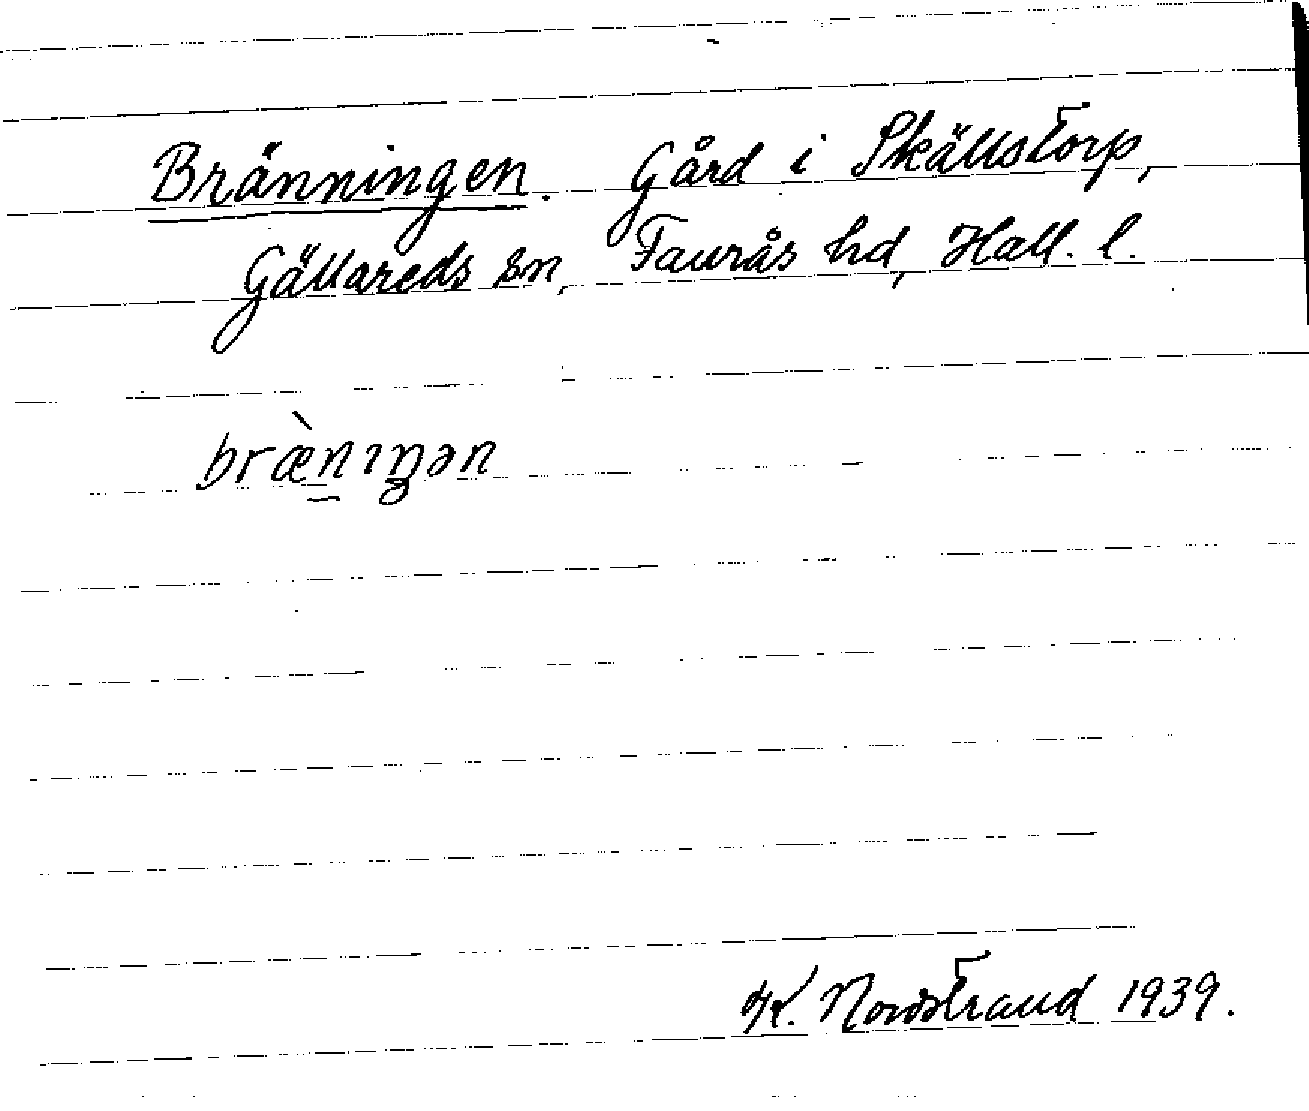 Bränningen. Gård i Skällstorp,
Gällareds sn, Faurås hd, Hall. l.
bræ̀nıŋən
K. Nordstrand 1939.